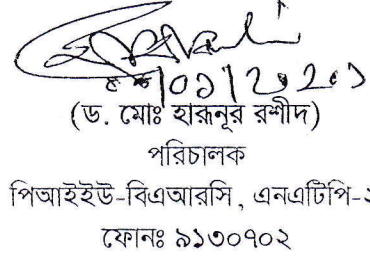 (ড. মোঃ হারুনূর রশীদ)
পরিচালক
পিআইইউ-বিএআরসি, এনএটিপি-২
ফোনঃ ৯১৩০৭০২